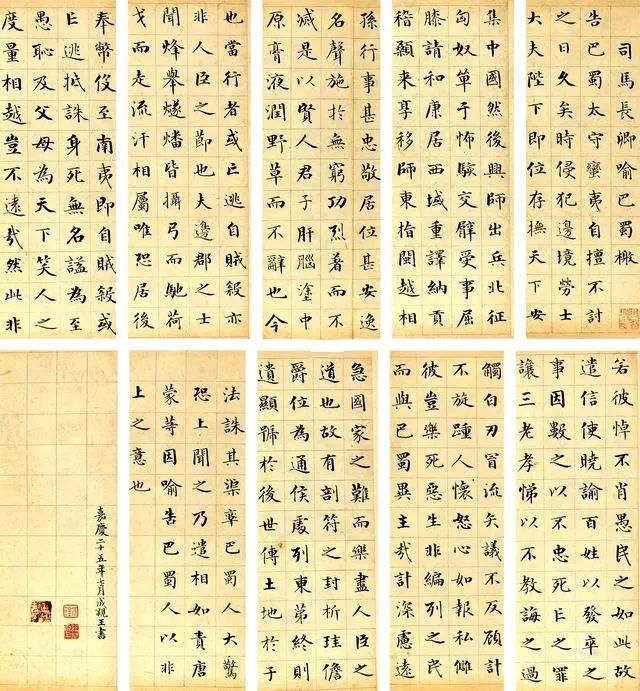 司馬長卿喻巴蜀檄
告巴蜀太守蠻夷自擅不討
之日久矣時侵犯邊境勞士
大夫陛下即位存撫天下安
集中國然後興師出兵北征
匈奴單于怖駭交臂受事屈
膝請和康居西域重譯納貢
稽顙來享移師東指閩越相
孫行事甚忠敬居位甚安逸
名聲施於無窮功烈著而不
滅是以賢人君子肝腦塗中
原膏液潤野草而不辭也今
也當行者或亡逃自賊殺亦
非人臣之節也夫邊郡之士
聞烽舉燧燔皆攝弓而馳荷
戈而走流汗相屬唯恐居後
奉幣役至南夷即自賊殺或
亡逃抵誅身死無名謚為至
愚恥及父母為天下笑人之
度量相越豈不遠哉然此非
若彼悼不肖愚民之如此故
遣信使曉諭百姓以發卒之
事因數之以不忠死亡之罪
讓三老孝悌以不教誨之過
觸白刃冒流矢議不反顧計
不旋踵人懷怒心如報私讎
彼豈樂死惡生非編列之民
而與巴蜀異主哉計深慮遠
急國家之難而樂盡人臣之
道也故有剖符之封析珪儋
爵位為通侯處列東第終則
遺顯號於後世傳土地於子
法誅其渠率巴蜀人大驚
恐上聞之乃遣相如責唐
蒙等因喻告巴蜀人以非
上之意也
嘉慶二十五年七月成親王書